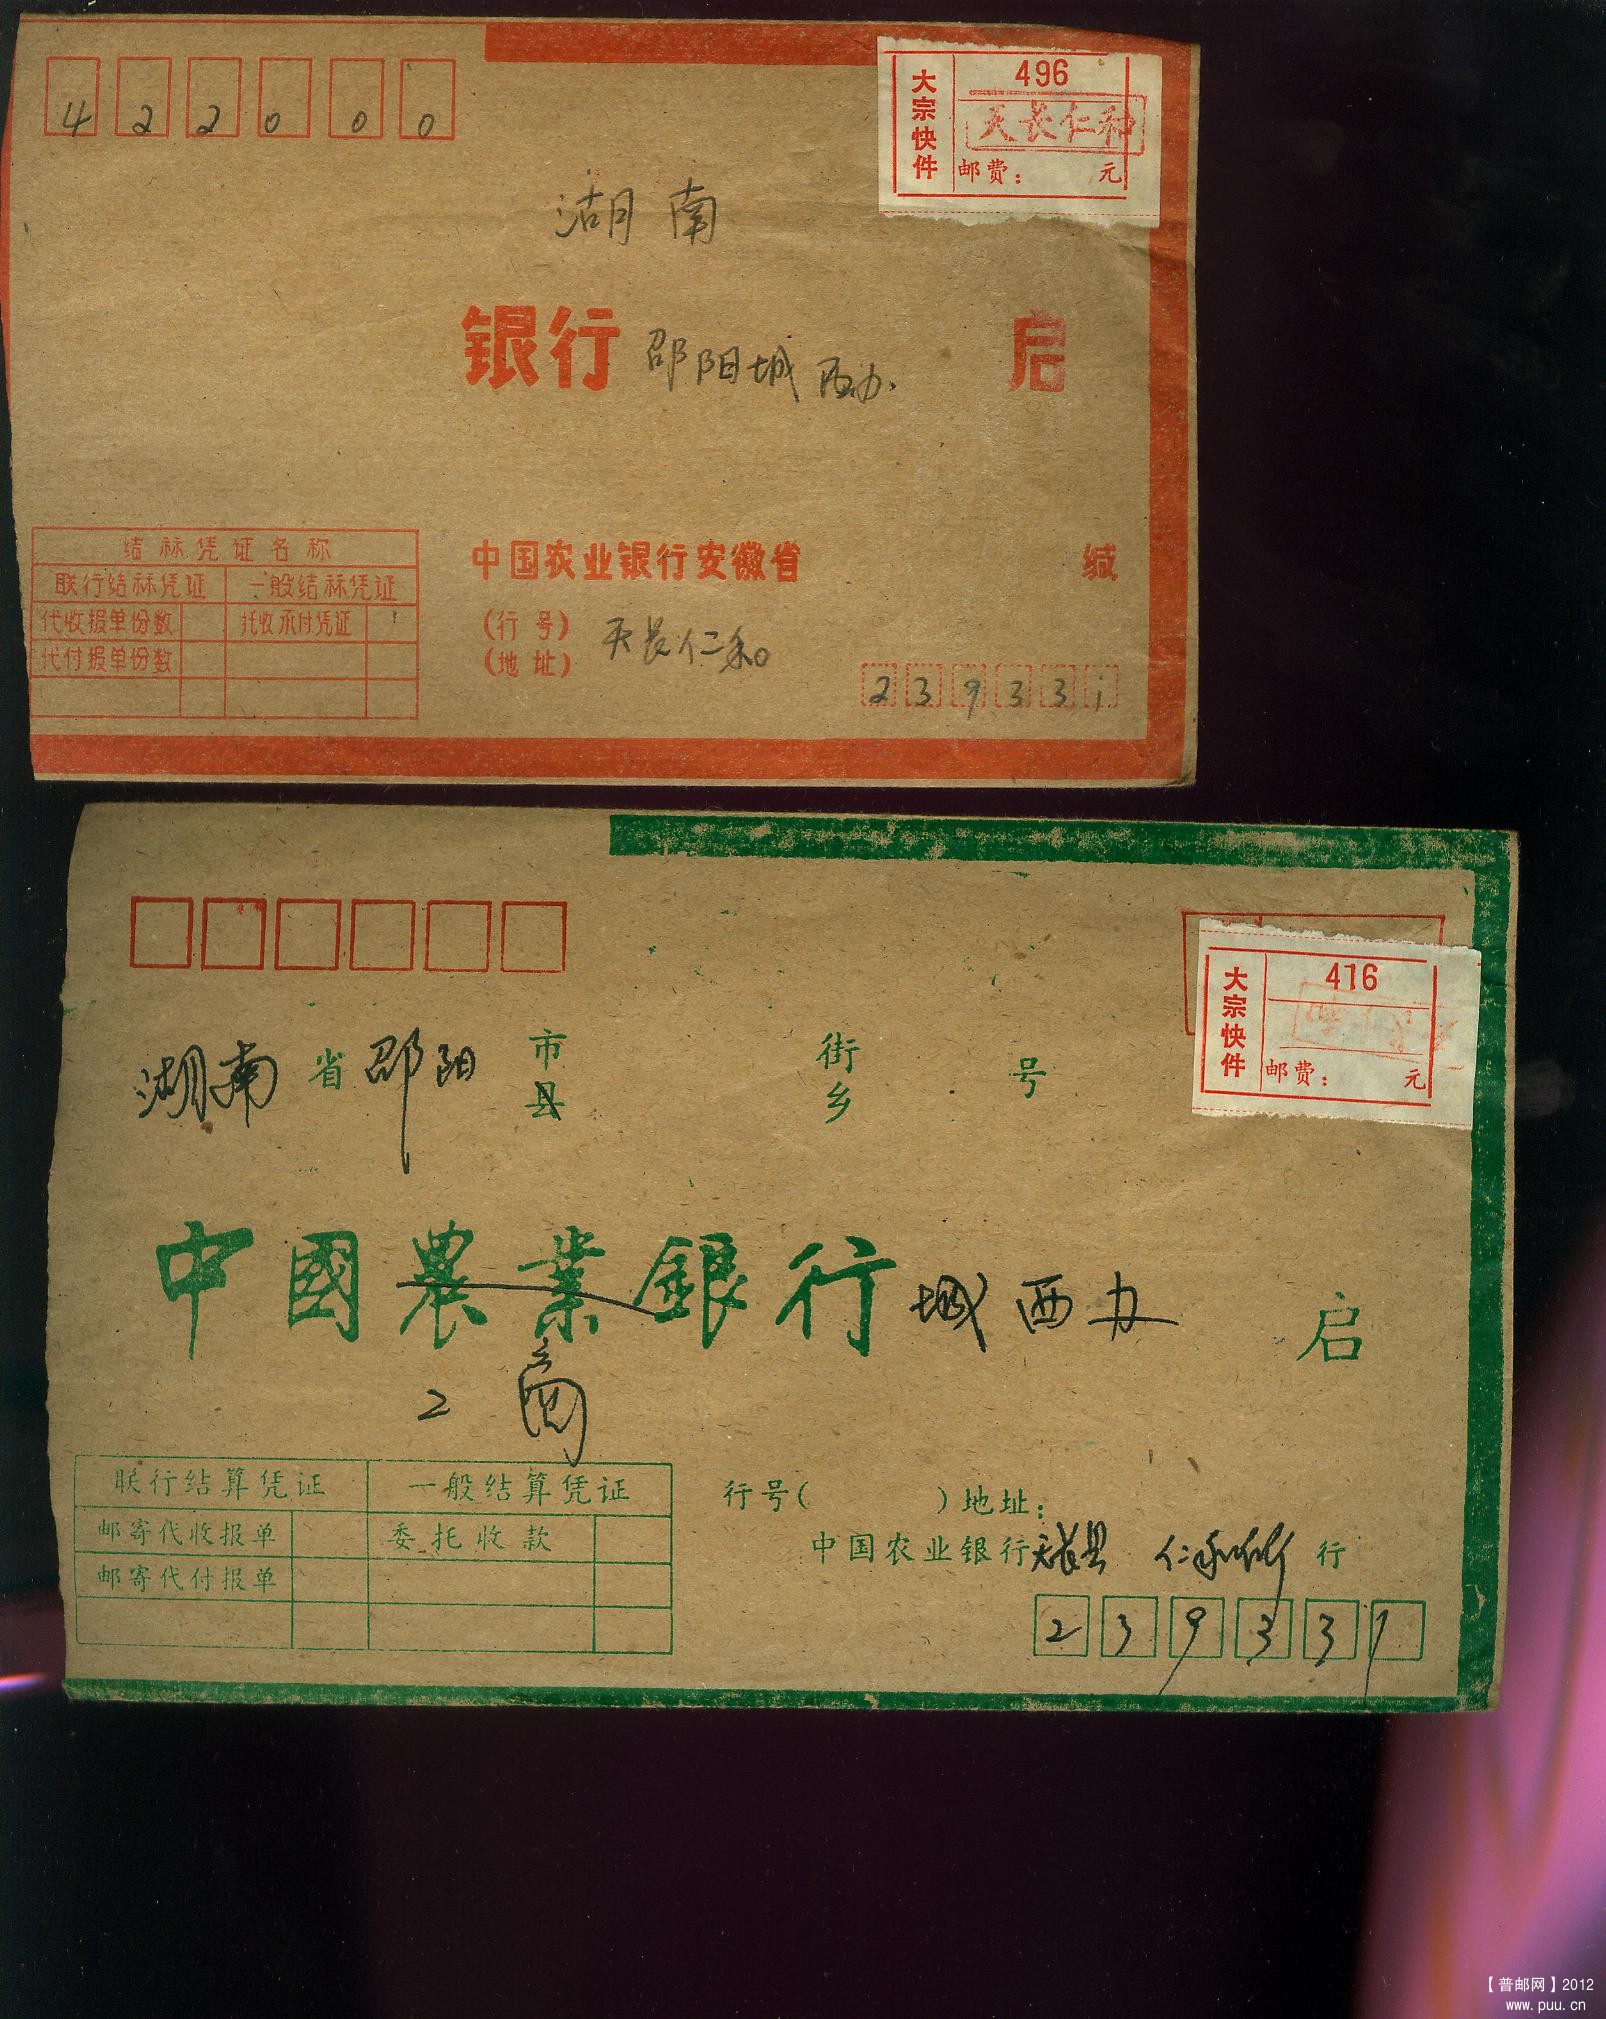 422000
大宗快件
496
天长仁和
邮费： 元
湖南
银行 邵阳城西办 启
结祘凭证名称
联行结祘凭证 一般结祘凭证
代收报单份数 托收承付凭证 1
代付报单份数
中国农业银行安徽省 缄
(行号)
(地址) 天长仁和
239331
大宗快件
416
邮费： 元
湖南省邵阳市县 街乡 号
中國農業銀行城西办 启
工商
联行结算凭证 一般结算凭证
邮寄代收报单 委托收款
邮寄代付报单
行号( )地址：
中国农业银行天长县 仁和 行
239331
【普邮网】2012
www.puu.cn